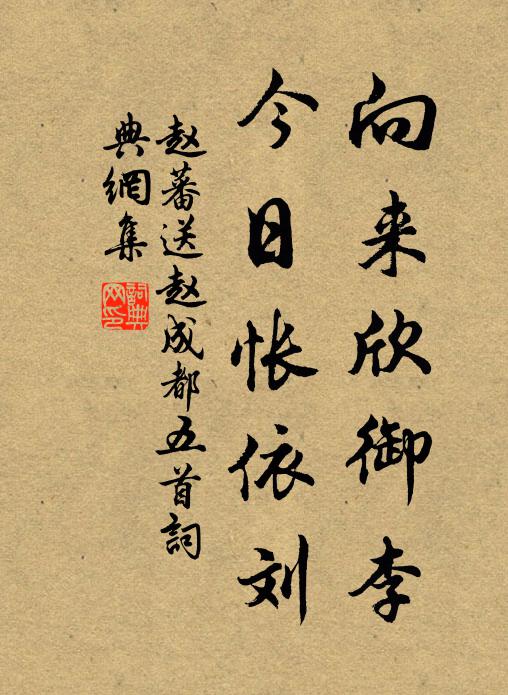 向来欣御李
今日怅依刘
赵蕃送赵成都五首詞
典網集
詞典网印